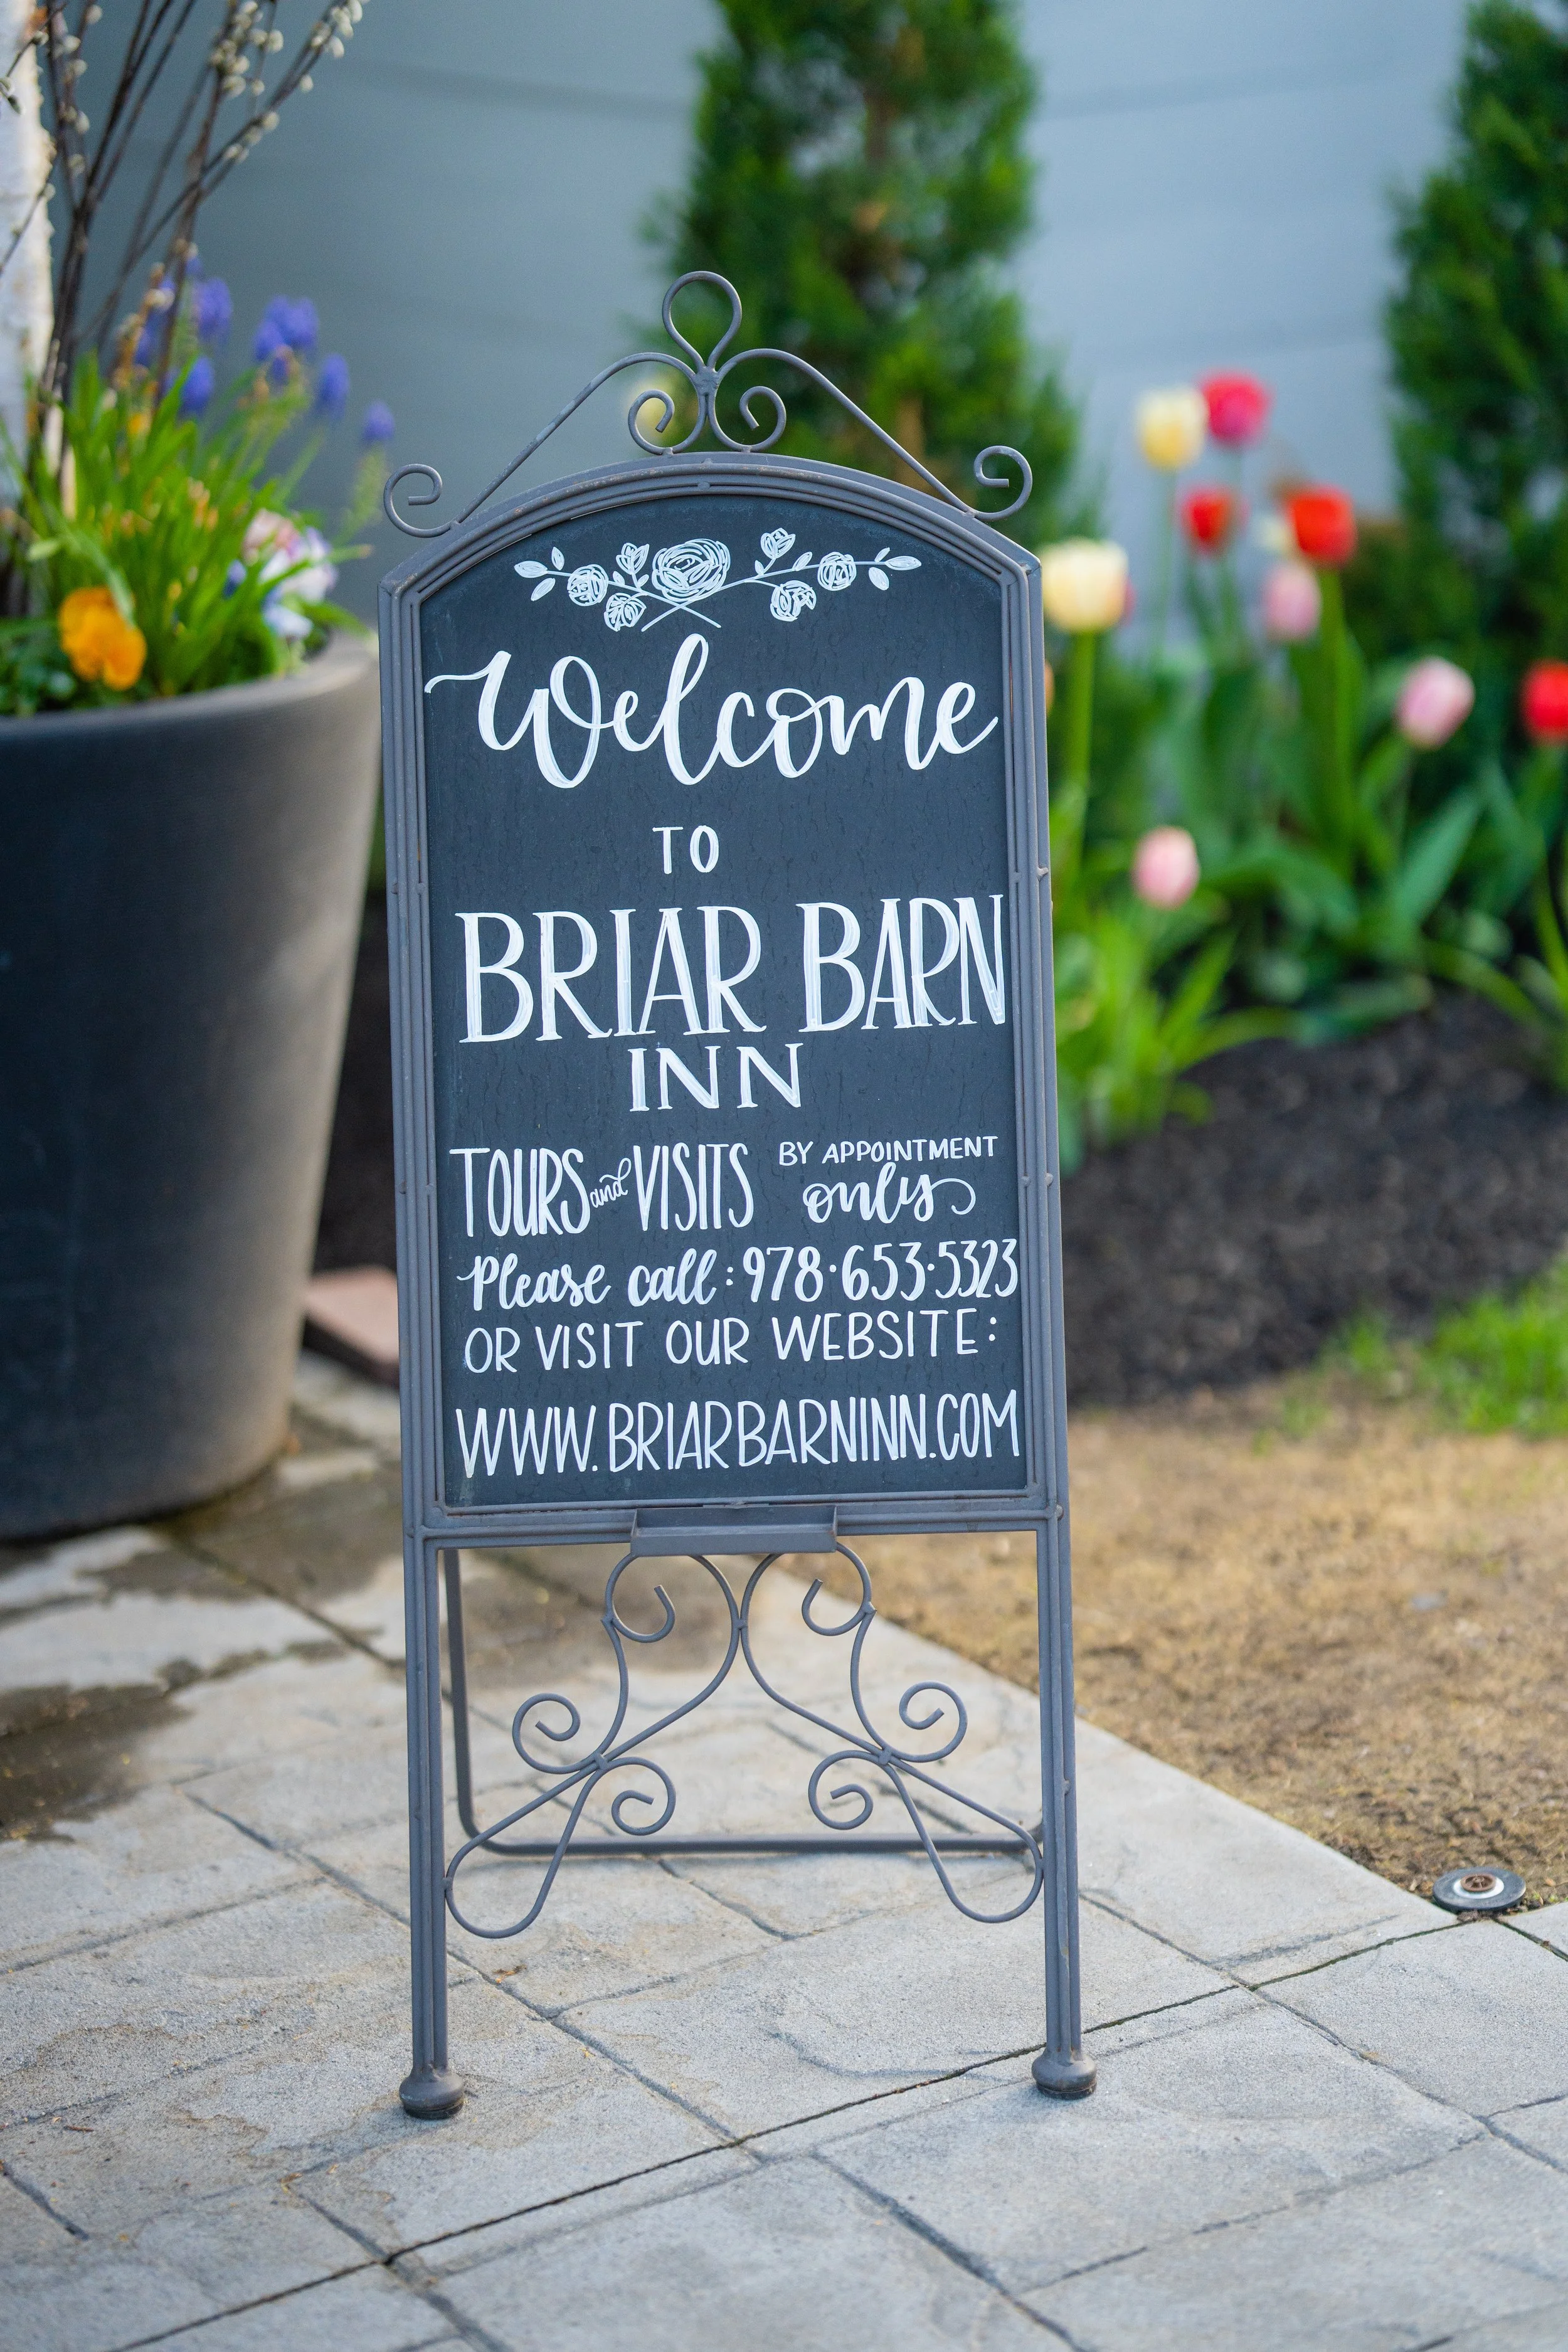 Welcome
TO
BRIAR BARN
INN
TOURS and VISITS BY APPOINTMENT only
Please call: 978·653·5323
OR VISIT OUR WEBSITE:
WWW.BRIARBARNINN.COM